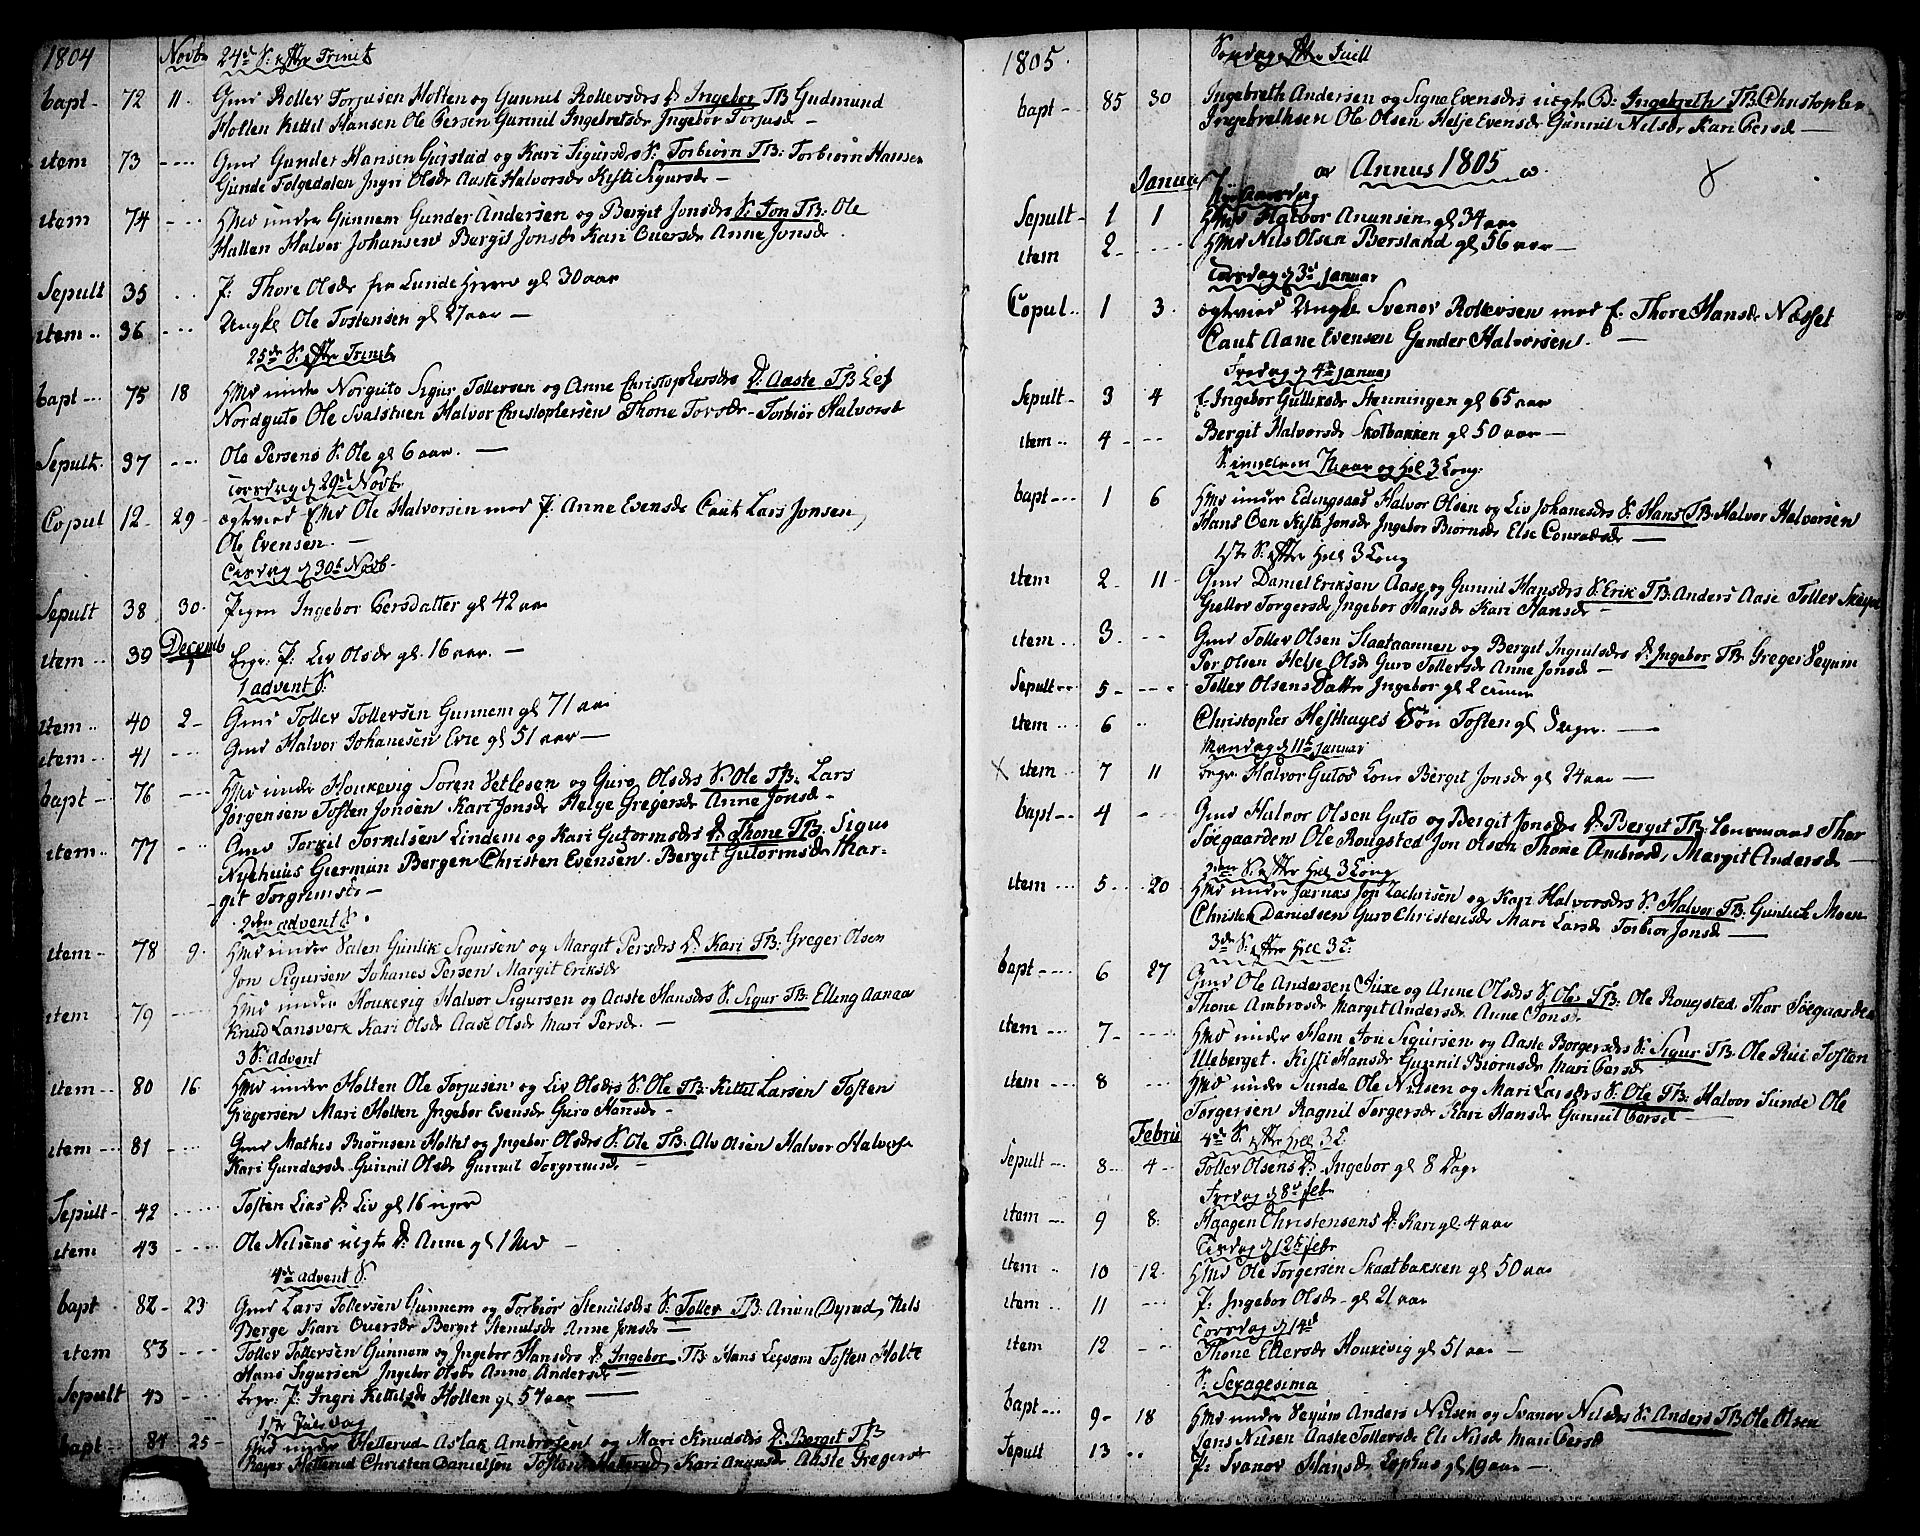 1804 Novb 24de S: efter Trinit
bapt- 72 11. Gmd Rollev Torjusen Holten og Gunnil Rollevsdrs D: Ingebor TB Gudmund
Holten Kittil Hansen Ole Persen Gunnil Ingebretsdr Ingebor Torjusdr
item 73 Gmd Gunder Hansen Gurstad og Kari Sigursdrs S: Torbiorn TB: Torbiorn Hansen
Gunde Folgedalen Ingri Olsdr Aaste Halvorsdr Kisti Sigursdr
item 74 Hmd under Gunnem Gunder Andersen og Bergit Jonsdrs S: Jon TB: Ole
Hallen Halvor Johansen Bergit Jonsdr Kari Ouersdr Anne Jonsdr
Sepult 35 P: Thore Olsdr fra Lunde gl 30 aar
item 36 Ungkl Ole Tostensen gl 27 aar
25de S. efter Trinit
bapt 75 18 Hmd under Norguto Sigur Tollevsen og Anne Christophersdrs D: Aaste TB Lef
Nordguto Ole Svalstuen Halvor Christophersen Thone Torsdr Torbiør Halvorsd
Sepult. 37 Ole Persens S: Ole gl 6 aar.
Torsdag d 29de Novb
Copul 12 29 ægtevied Ole Halvorsen med P: Anne Evensdr Caut Lars Jonsen
Ole Evensen.
d 30t Novb
Sepult 38 30. Pigen Ingebor Persdatter gl 42 aar
Decemb
item 39 P: Liv Olsdr gl. 16 aar.
1 advent S
item 40 2 Gmd Tollev Tollevsen Gunnem gl 71 aar
item 41 Gmd Halvor Johanesen Evie gl 51 aar
bapt 76 Hmd under Houkevig Soren Vetlesen og Guro Olsdrs S: Ole TB: Lars
Jørgensen Tosten Jonsen Kari Jonsdr Helge Gregersdr Anne Jonsd
item 77 Gmd Torkil Torkilsen Lindem og Kari Gutormsdrs D: Thone TB: Sigur
Nyehuus Gierman Bergen Christen Evensen. Bergit Gutormsdr Mar-
git Torgrimsdr
2den advent S.
item 78 9. Hmd under Valen Gunlik Sigursen og Margit Persdrs D: Kari TB: Greger Olsen
Jon Sigursen Johanes Persen Margit Eriksdr
item 79 Hmd under Houkevig Halvor Sigursen og Aaste Hansdrs S: Sigur TB: Elling Aanaa
Knud Lansverk Kari Olsdr Aase Olsdr Mari Persdr
3 S: Advent
item 80 16 Hmd under Holten Ole Torjusen og Liv Olsdrs S: Ole TB: Kittil Larsen Tosten
Gregersen Mari Holten Ingebor Evensdr Guro Hansdr
item 81 Gmd Mathis Biørnsen Holtes og Ingebor Olsdrs S: Ole TB: Alv Olsen Halvor Halvorse
Kari Gundersdr Gunnil Olsdr Gunnil Torgrimsdr
Sepult 42 Tosten Lias D: Liv gl 16 uger
item 43 Ole Nilsens D: Anne gl 1 Md
4de advent S.
bapt 82 23 Gmd Lars Tollevsen Gunnem og Torbiør Stenulsdrs S: Tollev TB: Anun Dyrud, Nils
Berge Kari Ouersdr Bergit Stenulsdr Anne Jonsdr
item 83 Tollev Tollevsen Gunnem og Ingebor Hansdrs D: Ingebor TB Hans Tosten Holte
Hans Sigursen Ingebor Olsdr Anne Andersdr
Sepult 43 P: Ingri Kittilsdr Holten gl 54 aar
1ste Juledag
bapt 84 25 Hmd under Hellerud Aslak Ambrosen og Mari Knudsdrs D: Bergit TB
Hellerud Christen Danielsen Tosten Hellerud Kari Anunsdr Aaste Gregersd
1805. Søndag efter Juell
bapt 85 30 Ingebreth Andersen og Signe Evensdrs B: Ingebreth TB Christopher
Ingebrethsen Ole Olsen Helje Evensdr Gunnil Nilsdr Kari Persdr
Annus 1805
Januar Nyt Aarsdag
Sepult 1 1 Hmd Halvor Anunsen gl 34 aar
item 2 Hmd Nils Olsen Bersland gl 56 aar
Torsdag d 3de januar
Copul 1 3. ægtevied Ungkl Svenov Rollevsen med P: Thore Hansdr Næsset
Caut Aane Evensen Gunder Halvorsen.
Fredag d 4de januar
Sepult 3 4 Ingebor Gullixsdr Stenningen gl 65 aar
item 4 Bergit Halvorsdr Skotbakken gl 50 aar
S: imellem Nyaar og Hel 3 Kong:
bapt 1 6 Hmd under Edingsaas Halvor Olsen og Liv Johanesdrs S: Hans TB Halvor Halvorsen
Hans Oen Kisti Jonsdr Ingebor Biørnsdr Else Conradsdr
1ste S. efter Hel 3 Kong
item 2 11 Gmd Daniel Eriksen Aase og Gunnil Hansdrs S: Erik TB: Anders Aase Tollev
Giellov Torgersdr Ingebor Hansdr Kari Hansdr
item 3. Gmd Tollev Olsen Slaataannen og Bergit Ingulsdrs D: Ingebor TB Greger Veyum
Per Olsen Helje Olsd Guro Tollevsdr Anne Jonsd
Sepult 5 Tollev Olsens Datter Ingebor gl 2 timer
item 6 Christopher Hesthages Søn Tosten gl 5 uger.
Mandag d 11t januar
x item 7 11 Halvor Gutos Kone Bergit Jonsdr gl 24 aar
bapt 4 Gmd Halvor Olsen Guto og Bergit Jonsdrs D: Bergit TB: Lensmand Thor
Søegaarden Ole Rougsted Jon Olsen Thone Ambrosd, Margit Andersdr
2den S: efter Hel 3 Kong
item 5 20 Hmd under Jærnæs Jon Zachrisen og Kari Halvorsdrs S: Halvor TB: Gunleck Moen
Christen Danielsen Guro Christensdr Mari Larsdr Torbior Jonsdr
3de S. efter Hel 3 K:
bapt 6 27 Gmd Ole Andersen Juxe og Anne Olsdrs S: Ole TB: Ole Rougsted Thor Søegaarden
Thone Ambrosdr Margit Andersdr Anne Jonsd
item 7 Hmd under Hem Jon Sigursen og Aaste Borgersdrs S: Sigur TB Ole Rui Tostan
Uleberget. Kisti Hansdr Gunnil Biørnsdr Mari Persdr
item 8 Hmd under Sunde Ole Nilsen og Mari Larsdrs S: Ole TB: Halvor Sunde Ole
Torgersen Ragnil Torgersdr Kari Hansdr Gunnil Persd
Febru 4de S. efter Hell 3 K
Sepult 8 4 Tollev Olsens D: Ingebor gl 8 Dage
Fredag d 8de feb
item 9 8. Haagen Christensens D: Kari gl 4 aar
Tirsdag d 12t feb
item 10 12. Hmd Ole Torgersen Skaatbakken gl 50 aar
item 11 P: Ingebor Olsdr gl 21 aar
Torsdag d 14de
item 12 Thone Ellefsdr Houkevig gl 51 aar
S: Sexagesima
bapt 9 18 Hmd under Veyum Anders Nilsen og Svanov Nilsdrs S: Anders TB Ole Olsen
Jens Nilsen Aaste Tollevsdr Eli Nilsdr Mari Persd
Sepult 13 P: Svanov Hansdr gl 19 aar